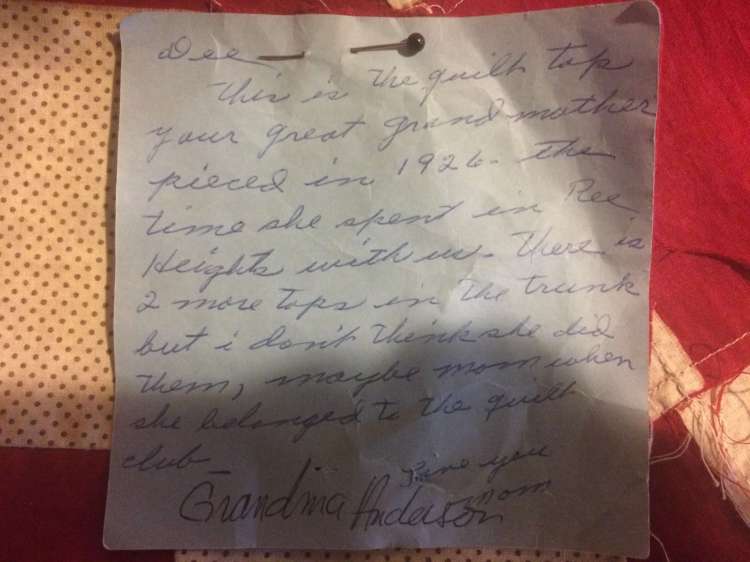 Dee
This is the quilt top
your great grand mother
pieced in 1926. the
time she spent in Ree
Heights with us. There is
2 more tops in the trunk
but i don't think she did
them, maybe mom when
she belonged to the quilt
club
Love you
mom
Grandma Anderson